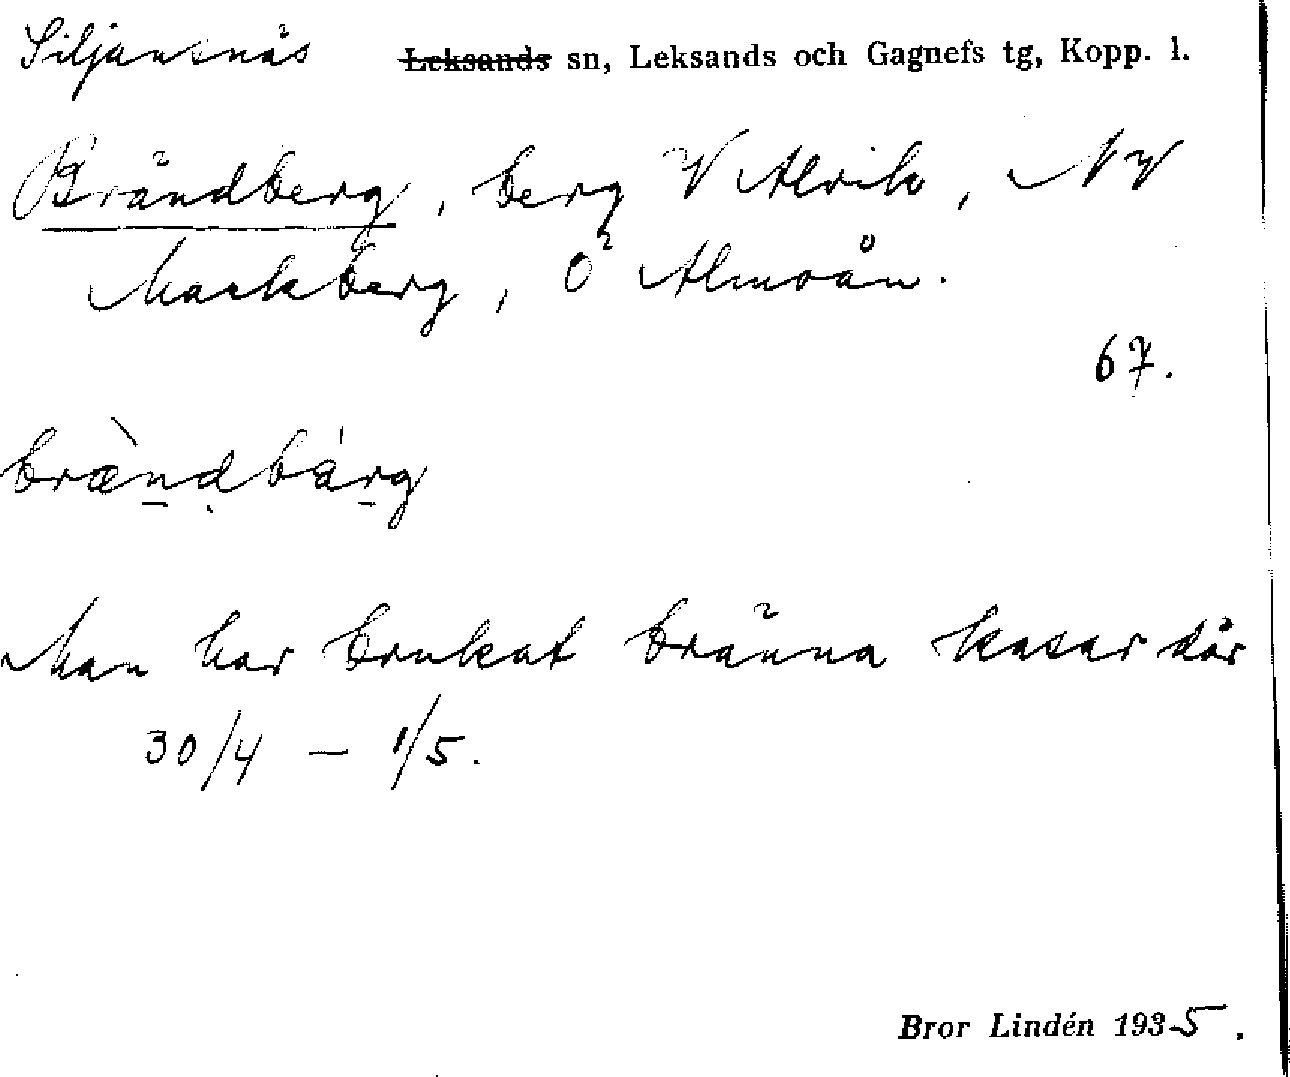 Siljansnäs Leksands sn, Leksands och Gagnefs tg, Kopp. l.
Brändberg, berg V Alvik, NV
Backberg, Ö Almoån.
67.
bræ̀ndbárg
Man har brukat bränna kasar där
30/4 — 1/5.
Bror Lindén 1935.